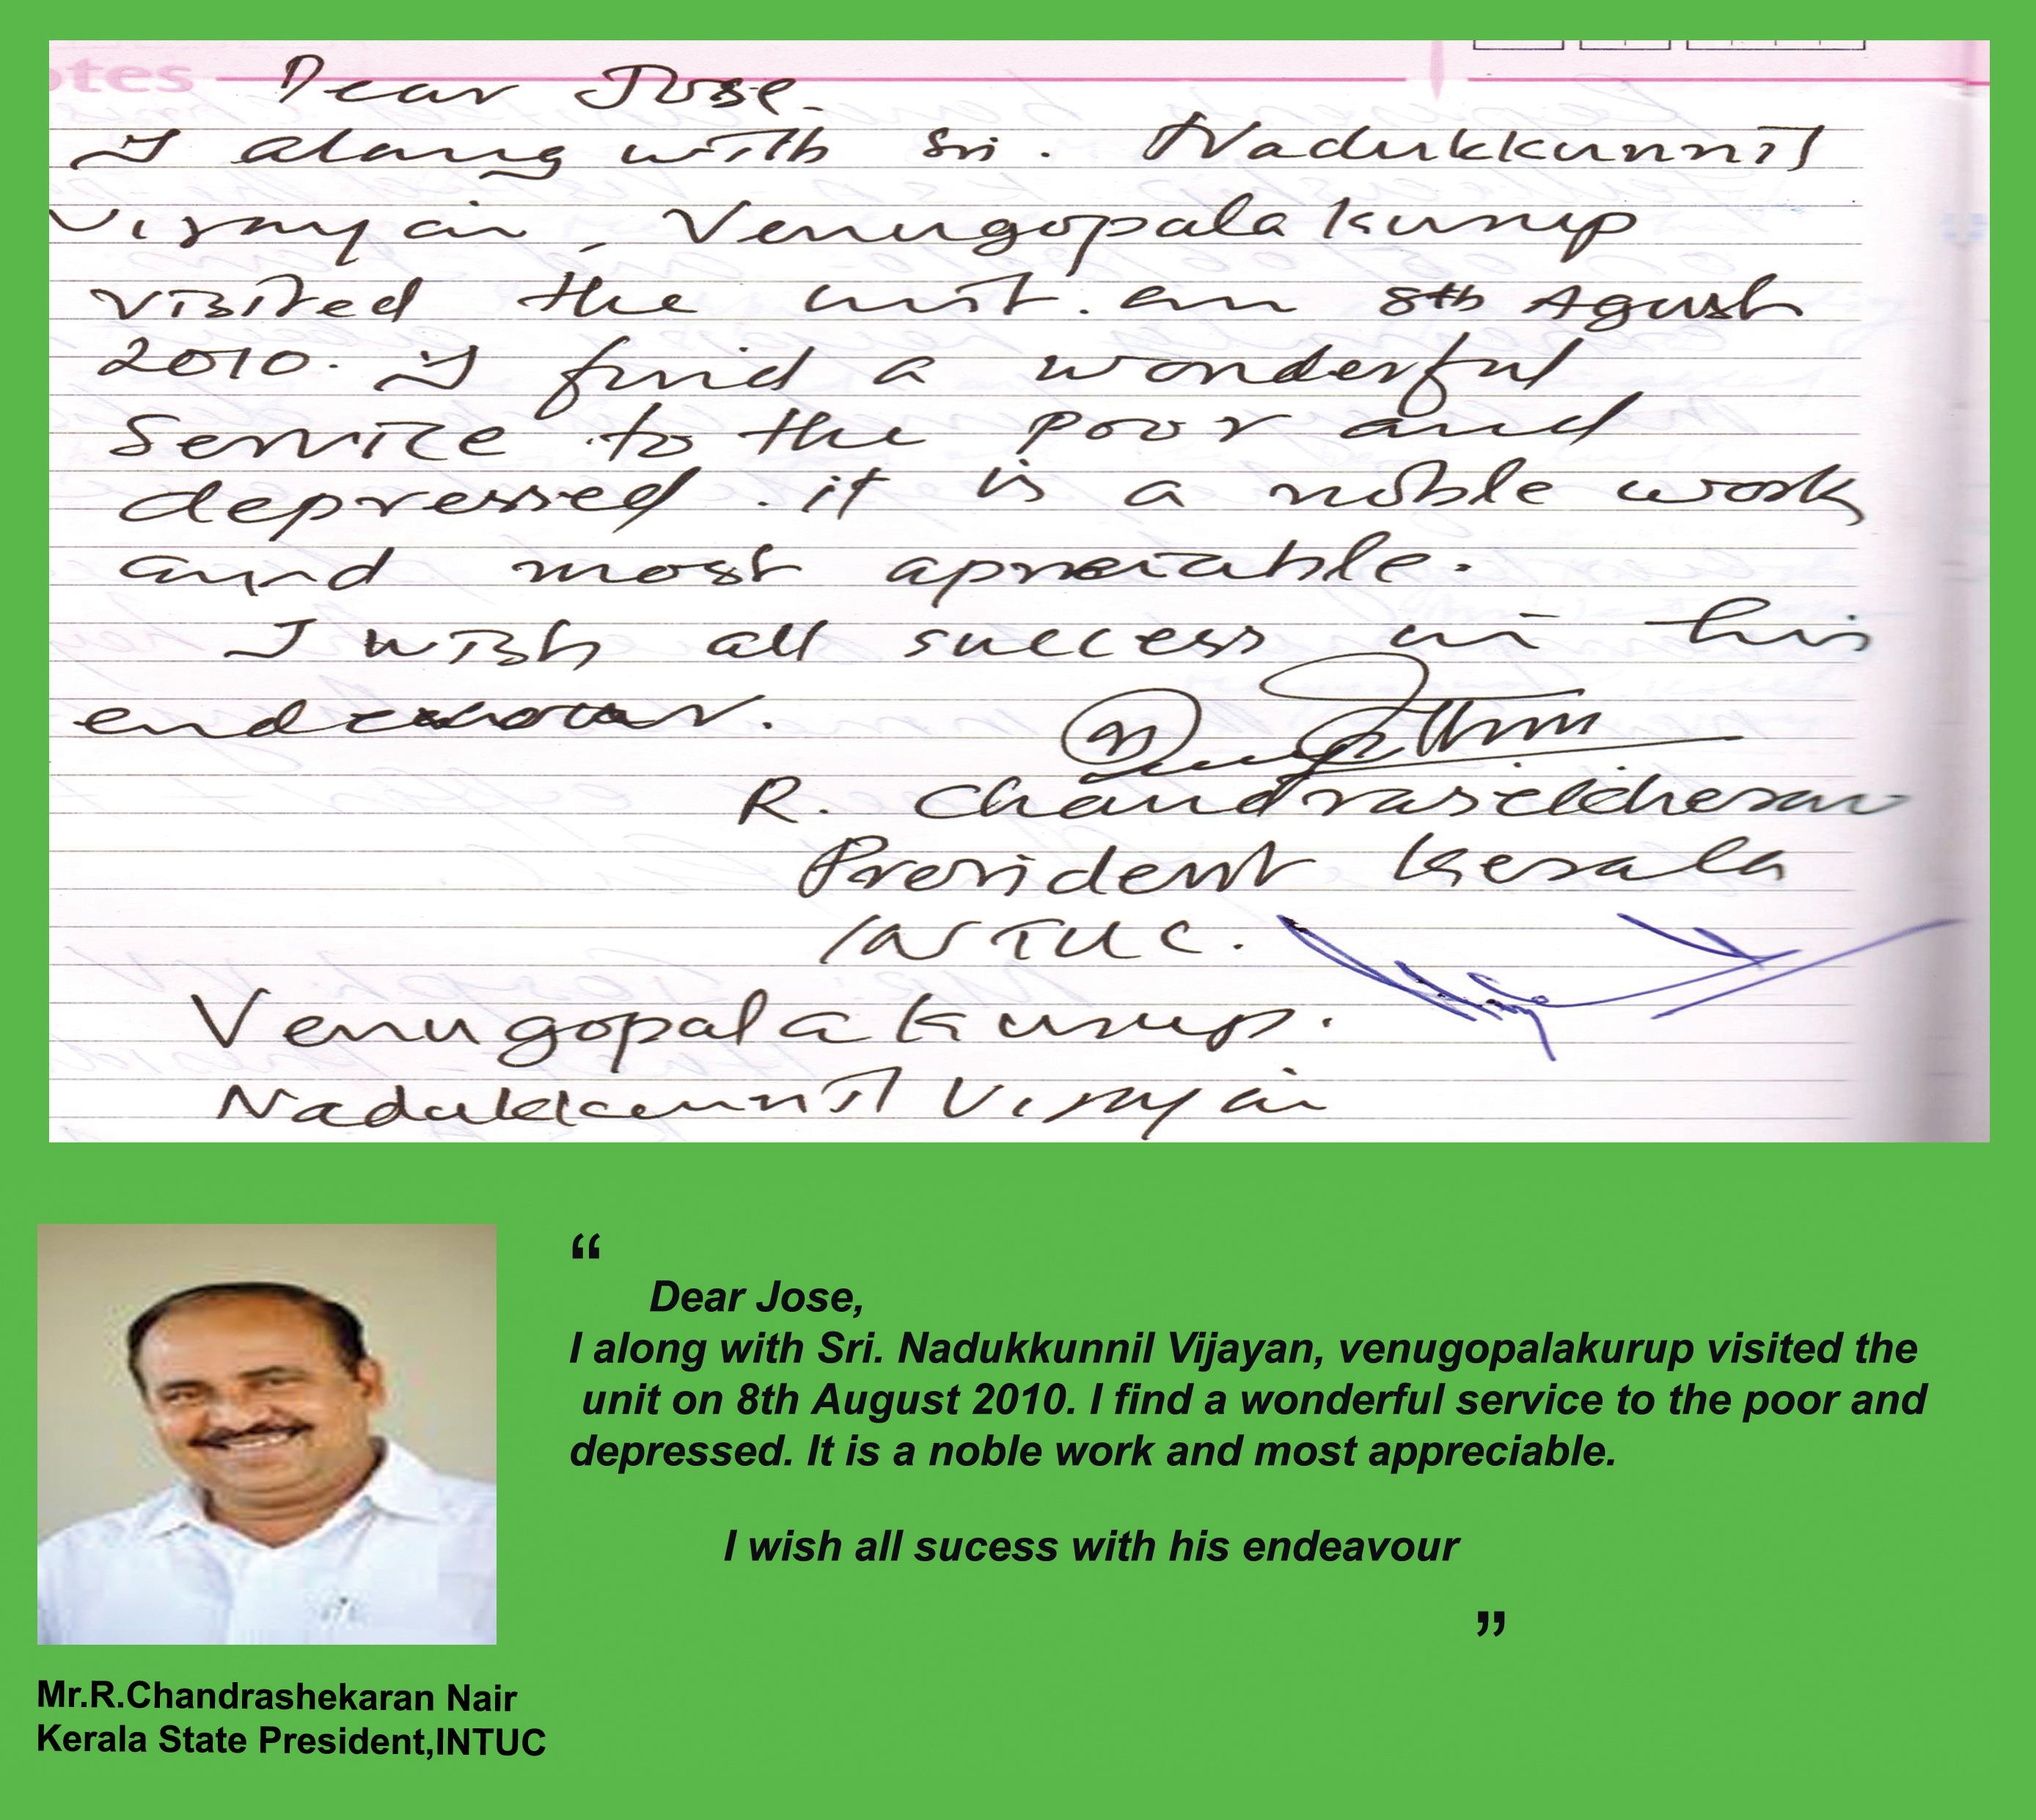 otes
Dear Jose.
I along with Sri. Nadukkunnil
Vijayan, Venugopala kurup
visited the unit. on 8th Agust
2010. I find a wonderful
Service to the poor and
depressed. it is a noble work
and most apreciable.
I wish all success in his
R. Chandrasekheran
President Kerala
INTUC.
Venugopala kurup.
Nadukkunnil Vijayan
“
Dear Jose,
I along with Sri. Nadukkunnil Vijayan, venugopalakurup visited the
unit on 8th August 2010. I find a wonderful service to the poor and
depressed. It is a noble work and most appreciable.
I wish all sucess with his endeavour
”
Mr.R.Chandrashekaran Nair
Kerala State President,INTUC